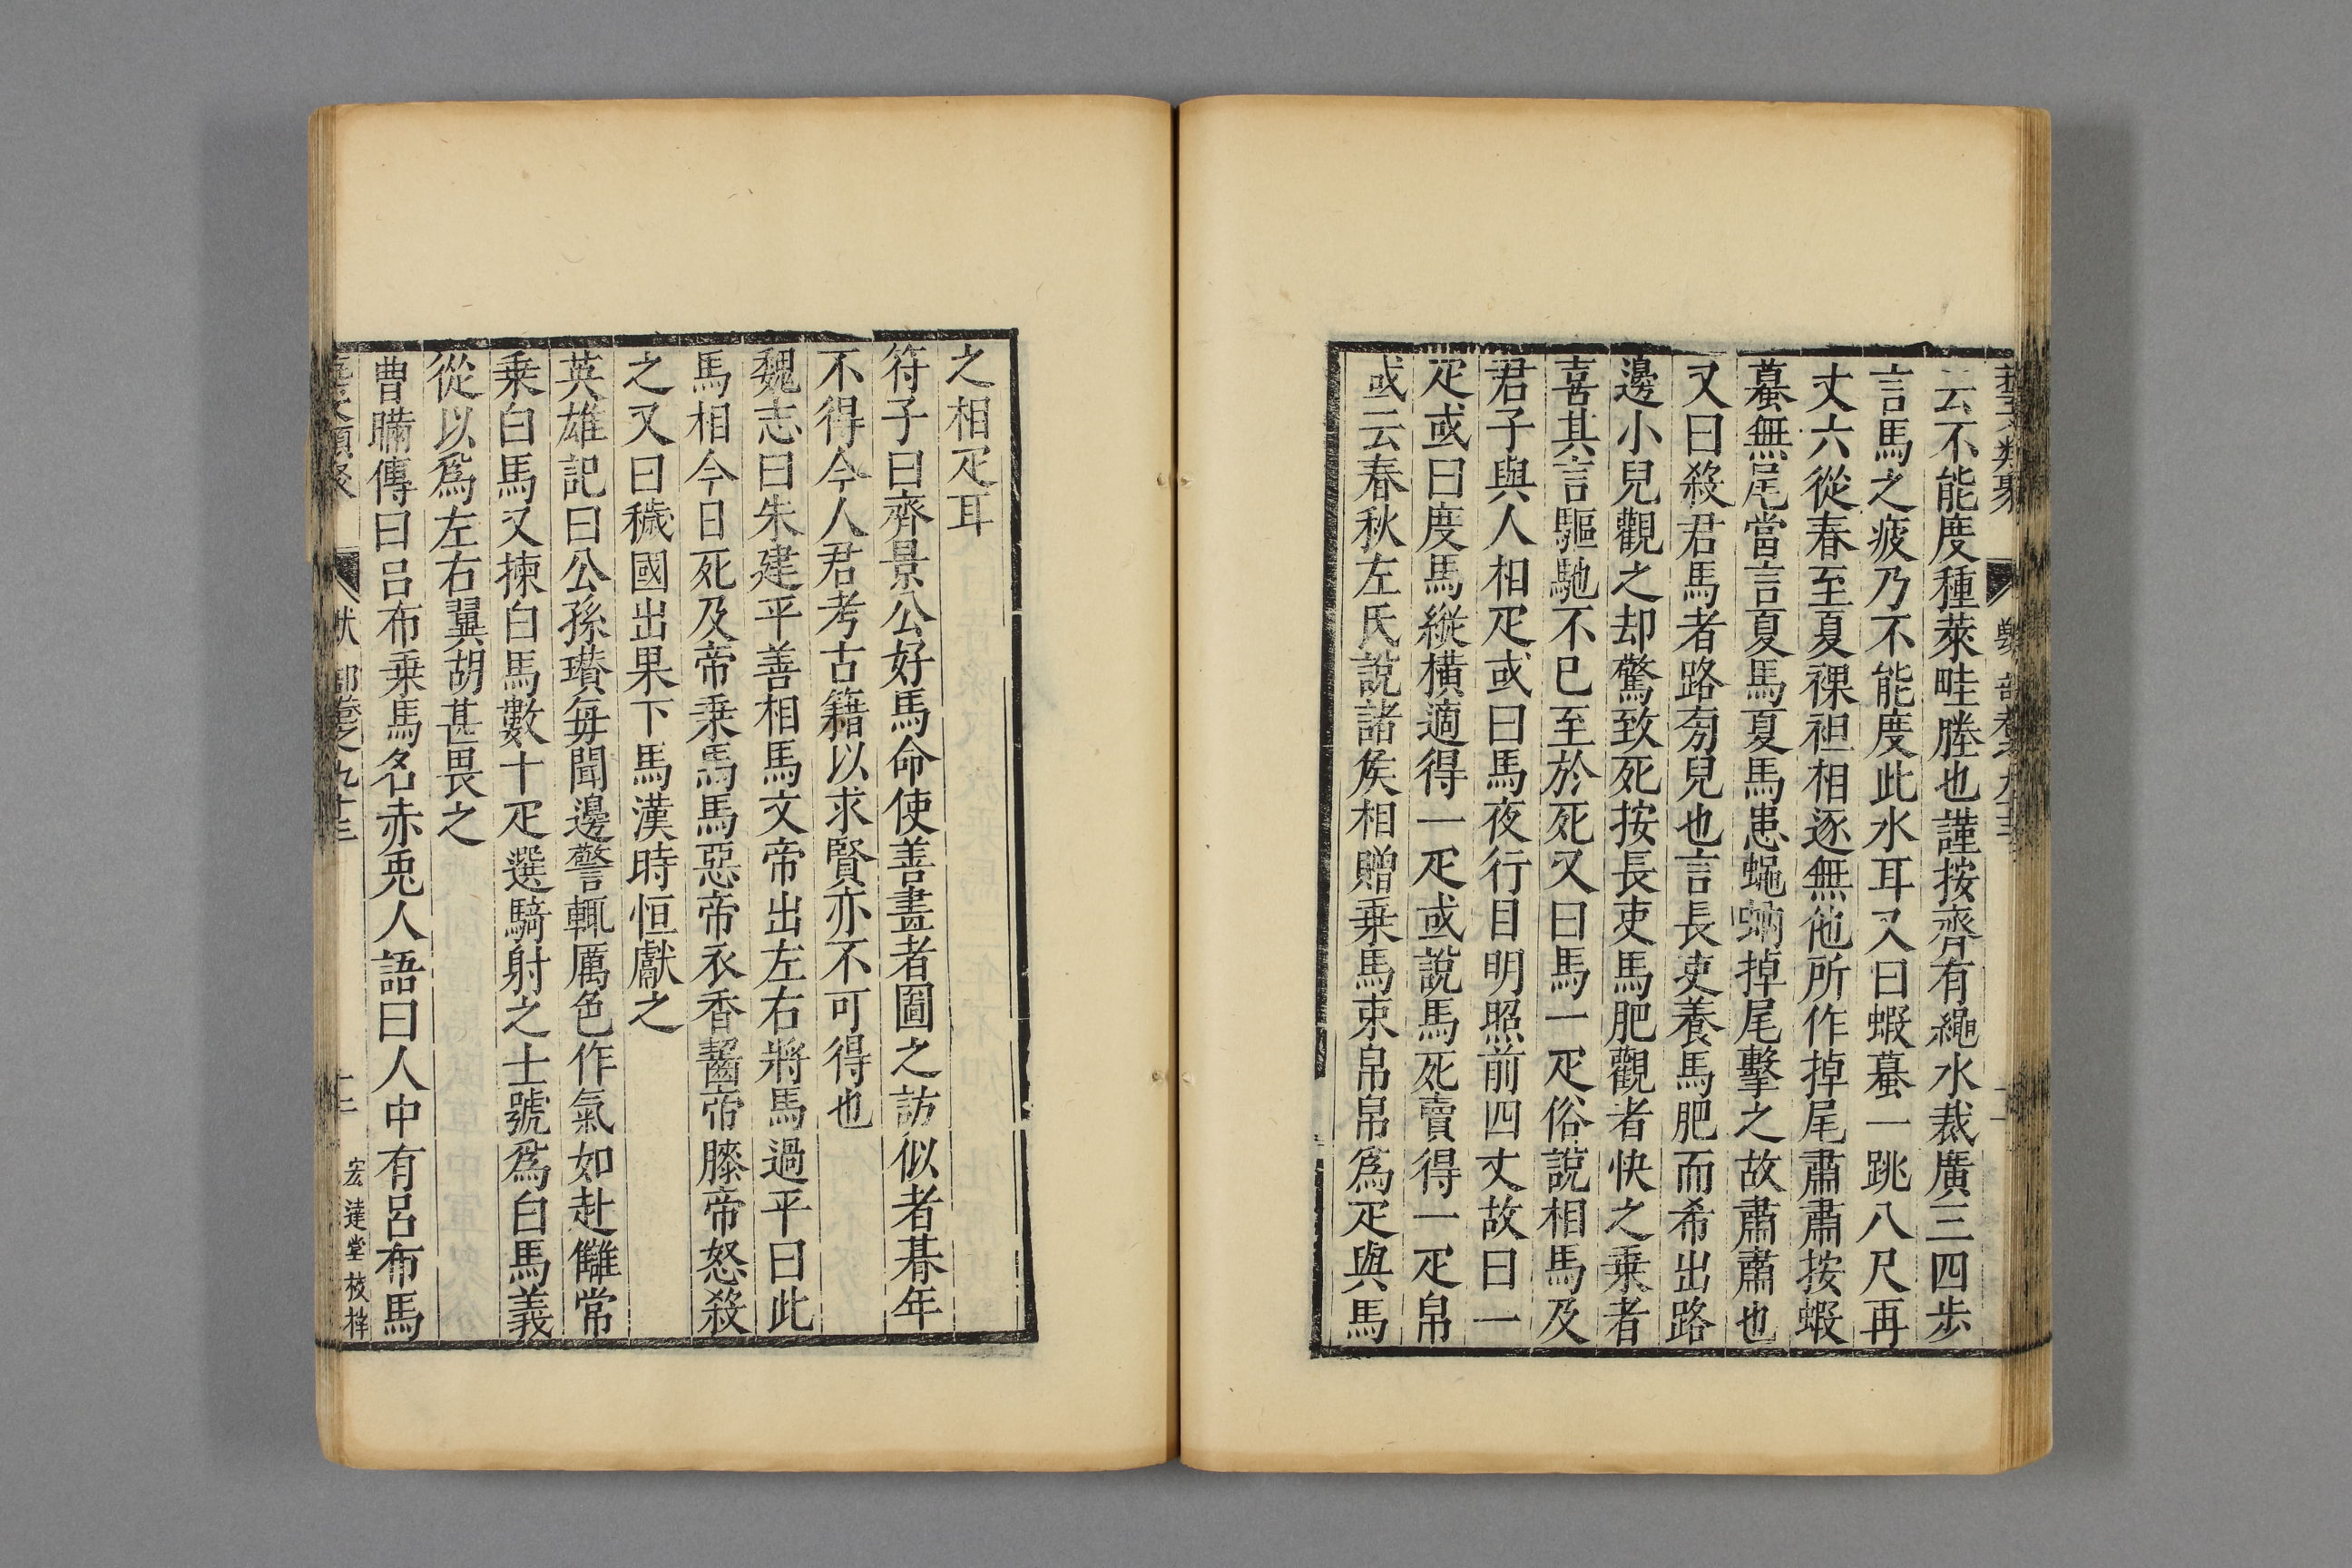 云不能度種萊畦塍也謹按齊有繩水裁廣三四步
言馬之疲乃不能度此水耳又曰蝦蟇一跳八尺再
丈六從春至夏裸袒相逐無他所作掉尾肅肅按蝦
蟇無尾當言夏馬夏馬患蠅蚋掉尾擊之故肅肅也
又曰殺君馬者路旁兒也言長吏養馬肥而希出路
邊小兒觀之却驚致死按長吏馬肥觀者快之乗者
喜其言驅馳不已至於死又曰馬一疋俗說相馬及
君子與人相疋或曰馬夜行目明照前四丈故曰一
疋或曰度馬縱橫適得一疋或說馬死賣得一疋帛
或云春秋左氏說諸矦相贈乗馬束帛帛爲疋與馬
之相疋耳
符子曰齊景公好馬命使善畫者圖之訪似者朞年
不得今人君考古籍以求賢亦不可得也
魏志曰朱建平善相馬文帝出左右將馬過平曰此
馬相今日死及帝乗馬馬惡帝衣香齧帝膝帝怒殺
之又曰穢國出果下馬漢時恒獻之
英雄記曰公孫瓚每聞邊警輒厲色作氣如赴讎常
乗白馬又揀白馬數十疋選騎射之士號爲白馬義
從以爲左右翼胡甚畏之
曹瞞傳曰呂布乗馬名赤兎人語曰人中有呂布馬
宏達堂校梓